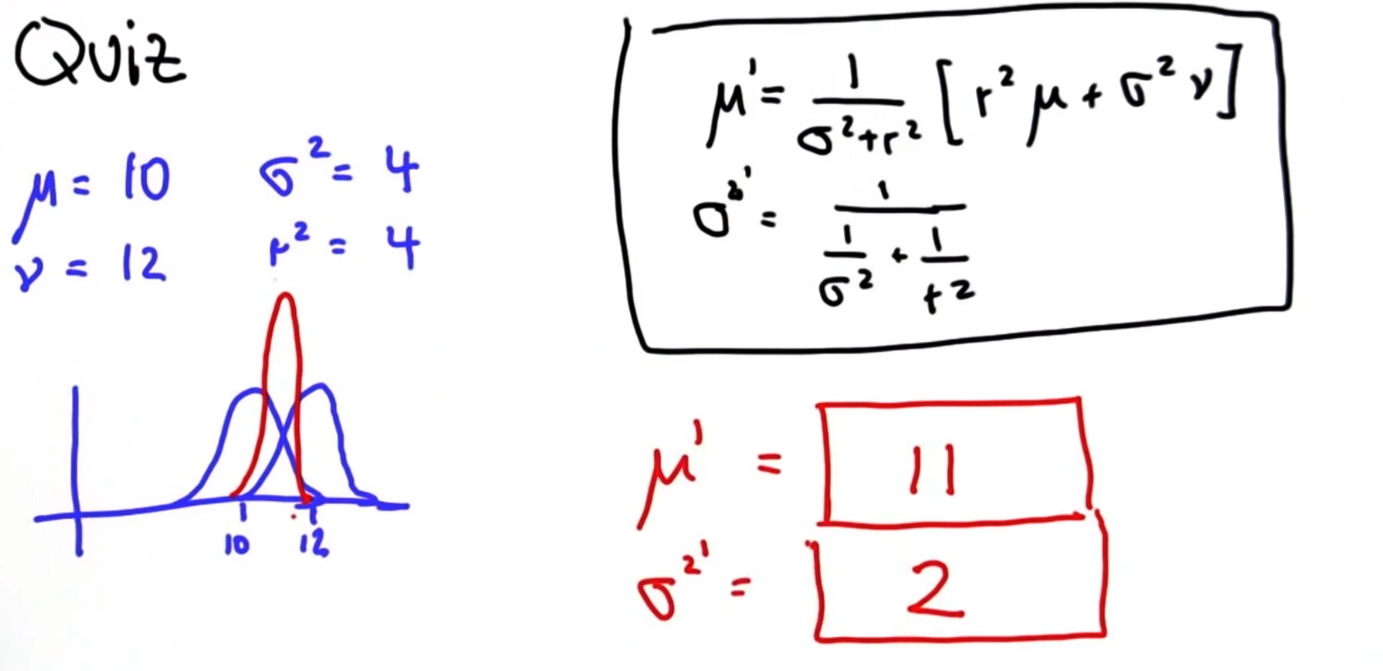 Quiz
μ = 10   σ² = 4
ν = 12   r² = 4
μ' = 1/(σ²+r²) [r² μ + σ² ν]
σ²' = 1/(1/σ² + 1/r²)
10 12
μ' = 11
σ²' = 2